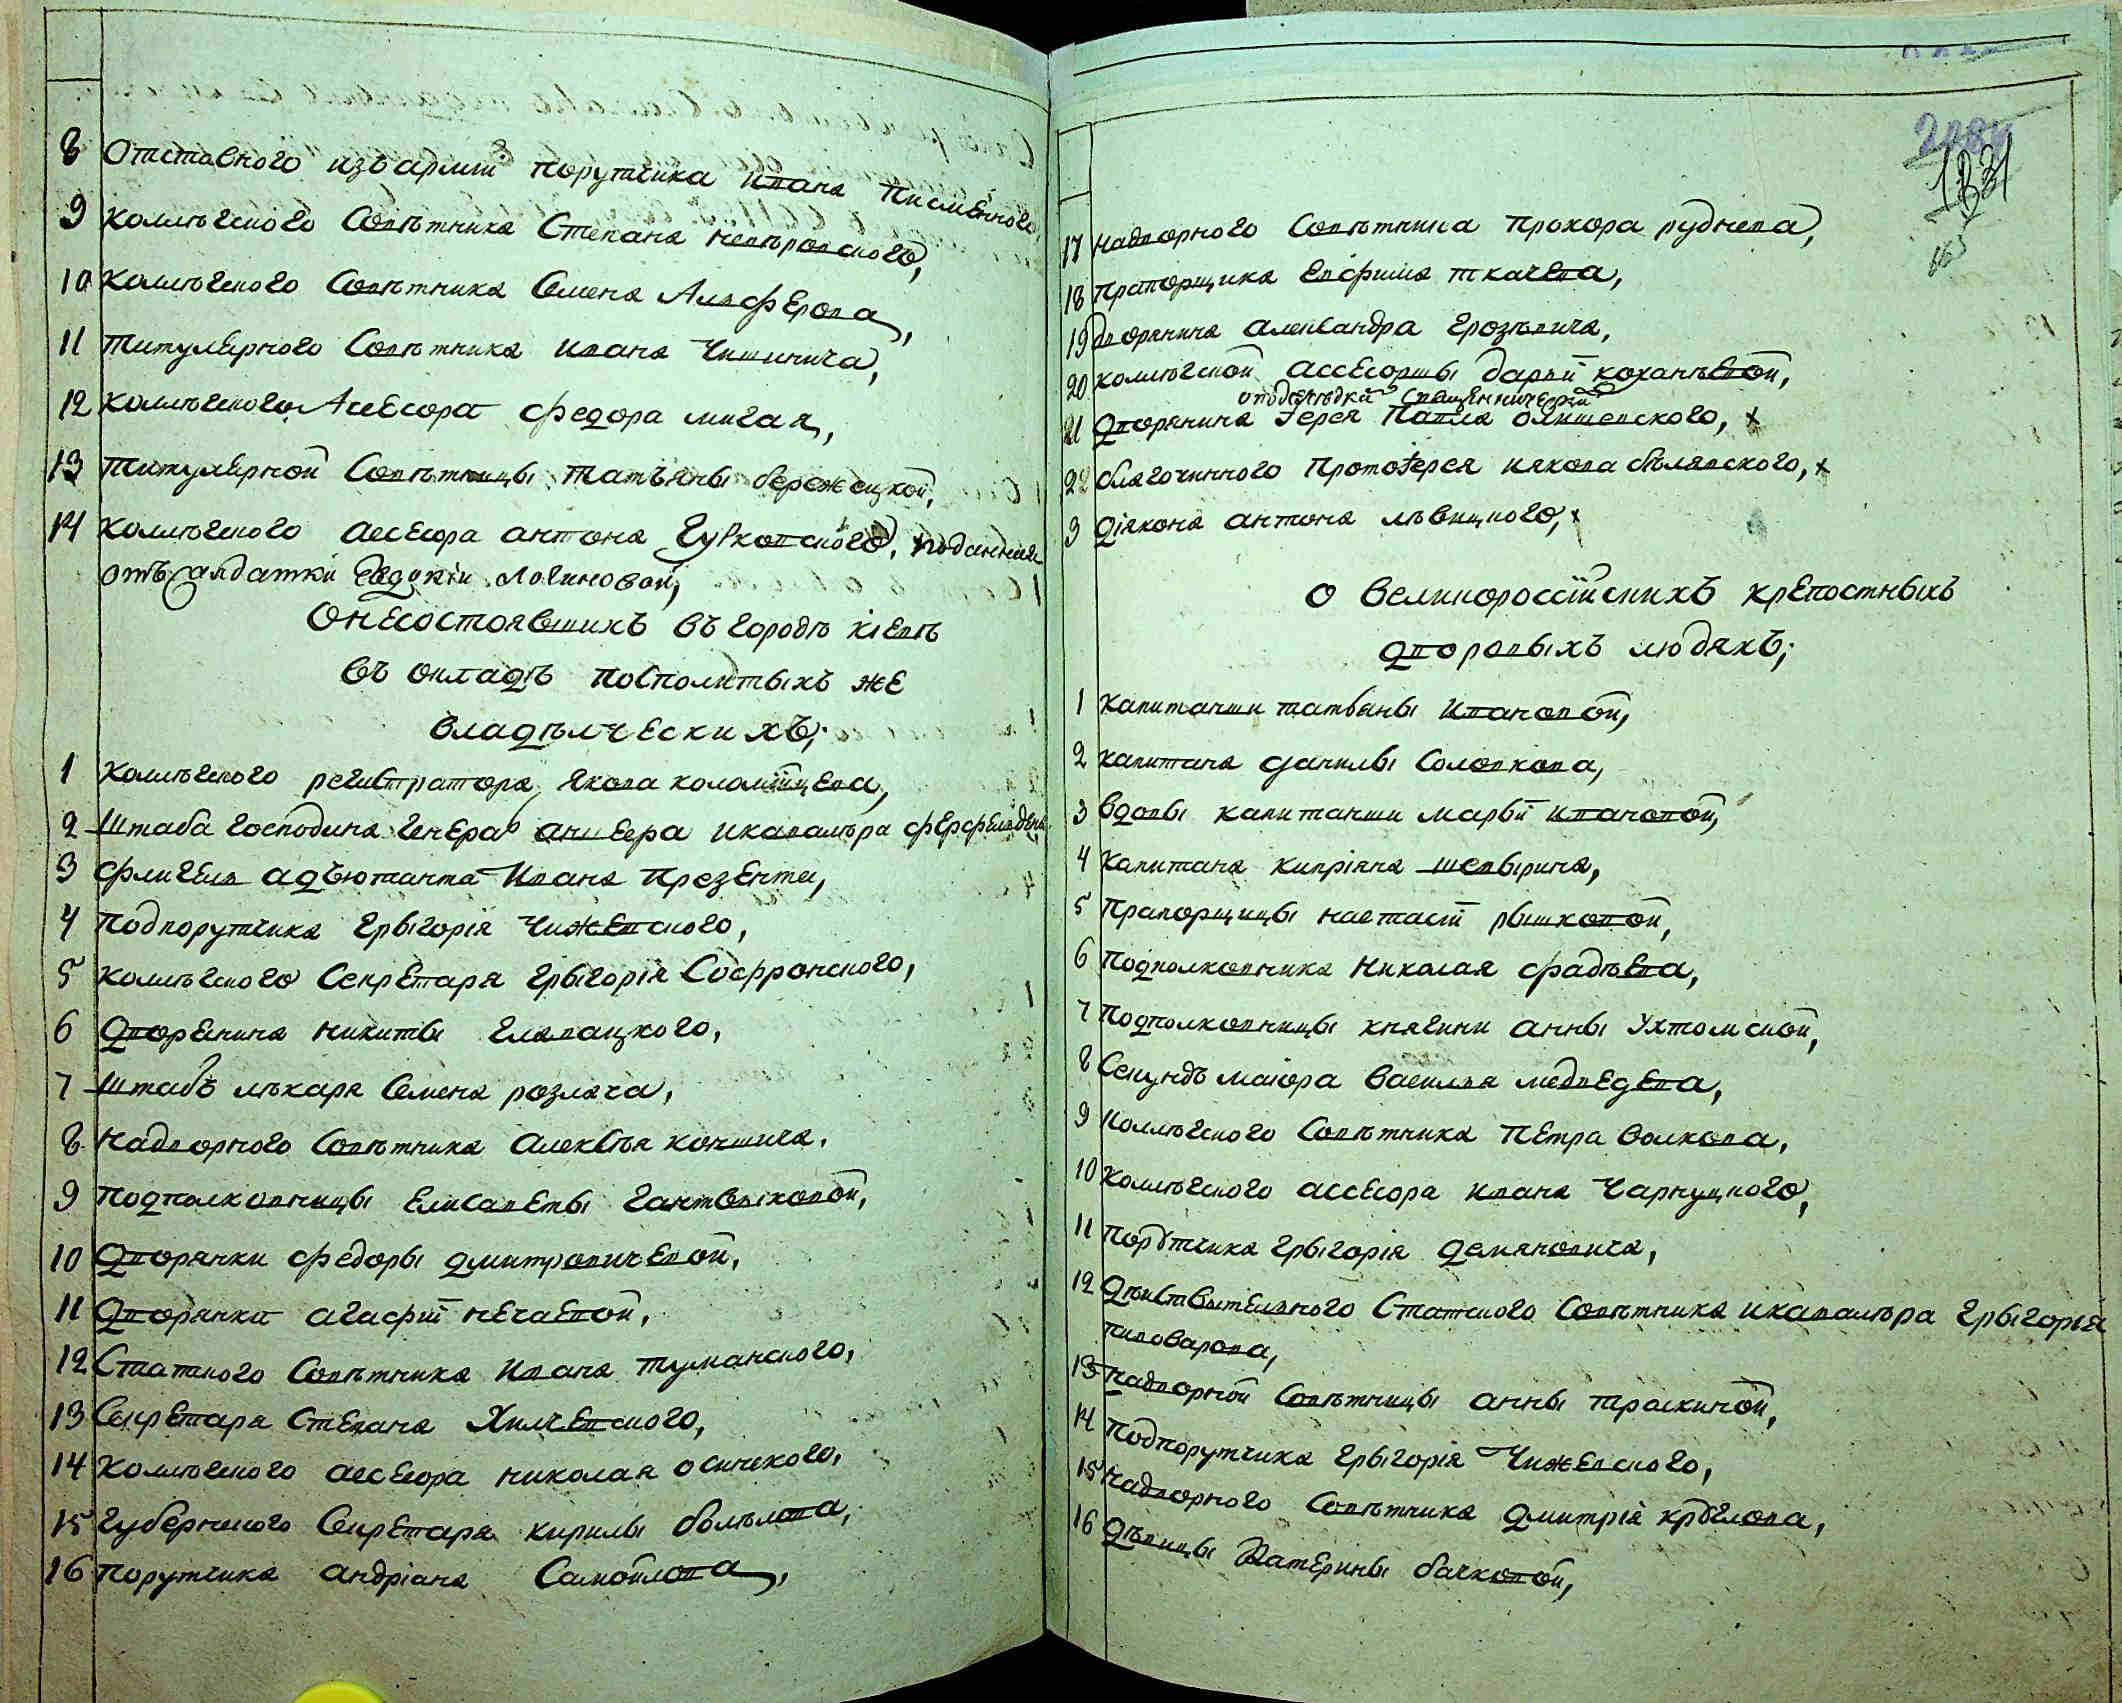 8 Отставного изъ армїи порутчика ивана писменного,
9 коллѣгского Совѣтника Степана неверовского,
10 коллѣгского Совѣтника Семена Алферова,
11 титулярного Совѣтника ивана Чишинича,
12 коллѣгского Асесора федора мигая,
13 титулярной Совѣтницы татъяны бережецкой,
14 коллѣгского ассесора антона Гурковского, поданная
отъ салдатки Евдокїи Логиновой,
О несостоявшихъ въ городѣ кіевѣ
въ окладѣ посполитыхъ же
владѣлческихъ;
1 коллѣгского регистратора якова коломїицева,
2 Штаба господина генерал аншефа икавалѣра
3 флигель адъютанта Ивана Презента,
4 подпорутчика григорія Чижевского,
5 коллѣгского Секретаря григорія Софроновского,
6 дворянина никиты
7 Штабъ лѣкаря Семена розлача,
8 надворного Совѣтника алексѣя коншича,
9 подполковницы Елисаветы
10 дворянки федоры дмитровичевой,
11 дворянки агафїи нечаевой,
12 Статского Совѣтника ивана туманского,
13 Секретаря Степана Хилчевского,
14 коллѣгского ассесора николая осинского,
15 губернского Секретаря кирилы
16 порутчика андріана Самойлова,
2084
1831
163
17 надворного Совѣтника прохора руднева,
18 прапорщика Евфима ткачева,
19 дворянина александра грозѣвича,
20 коллѣгской ассесоршы дарьи коханѣвой,
священнической
21 дворянина Іерея Павла олишевского, х
22 благочинного протоїерея иякова бѣлявского, х
3 діакона антона лѣвицкого, х
о великороссїискихъ крепостныхъ
дворовыхъ людяхъ;
1 капитанши татьяны ивановой,
2 капитана данилы Соловкова,
3 вдовы капитанши марьи ивановой,
4 капитана кипріяна шевырина,
5 прапорщицы настасїи рышковой,
6 подполковника николая фадѣева,
7 подполковницы княгини анны ухтомской,
8 Секундъ маіора василья медведева,
9 коллѣгского Совѣтника петра волкова,
10 коллѣгского ассесора ивана Чарнуцкого,
11 порутчика григорія демяновича,
12 дѣиствителного Статского Совѣтника икавалѣра григорія
пивоварова,
13 надворной Совѣтницы анны траскиной,
14 подпорутчика григорія Чижевского,
15 надворного Совѣтника дмитрія круглова,
16 дѣвицы Катерины бачковой,